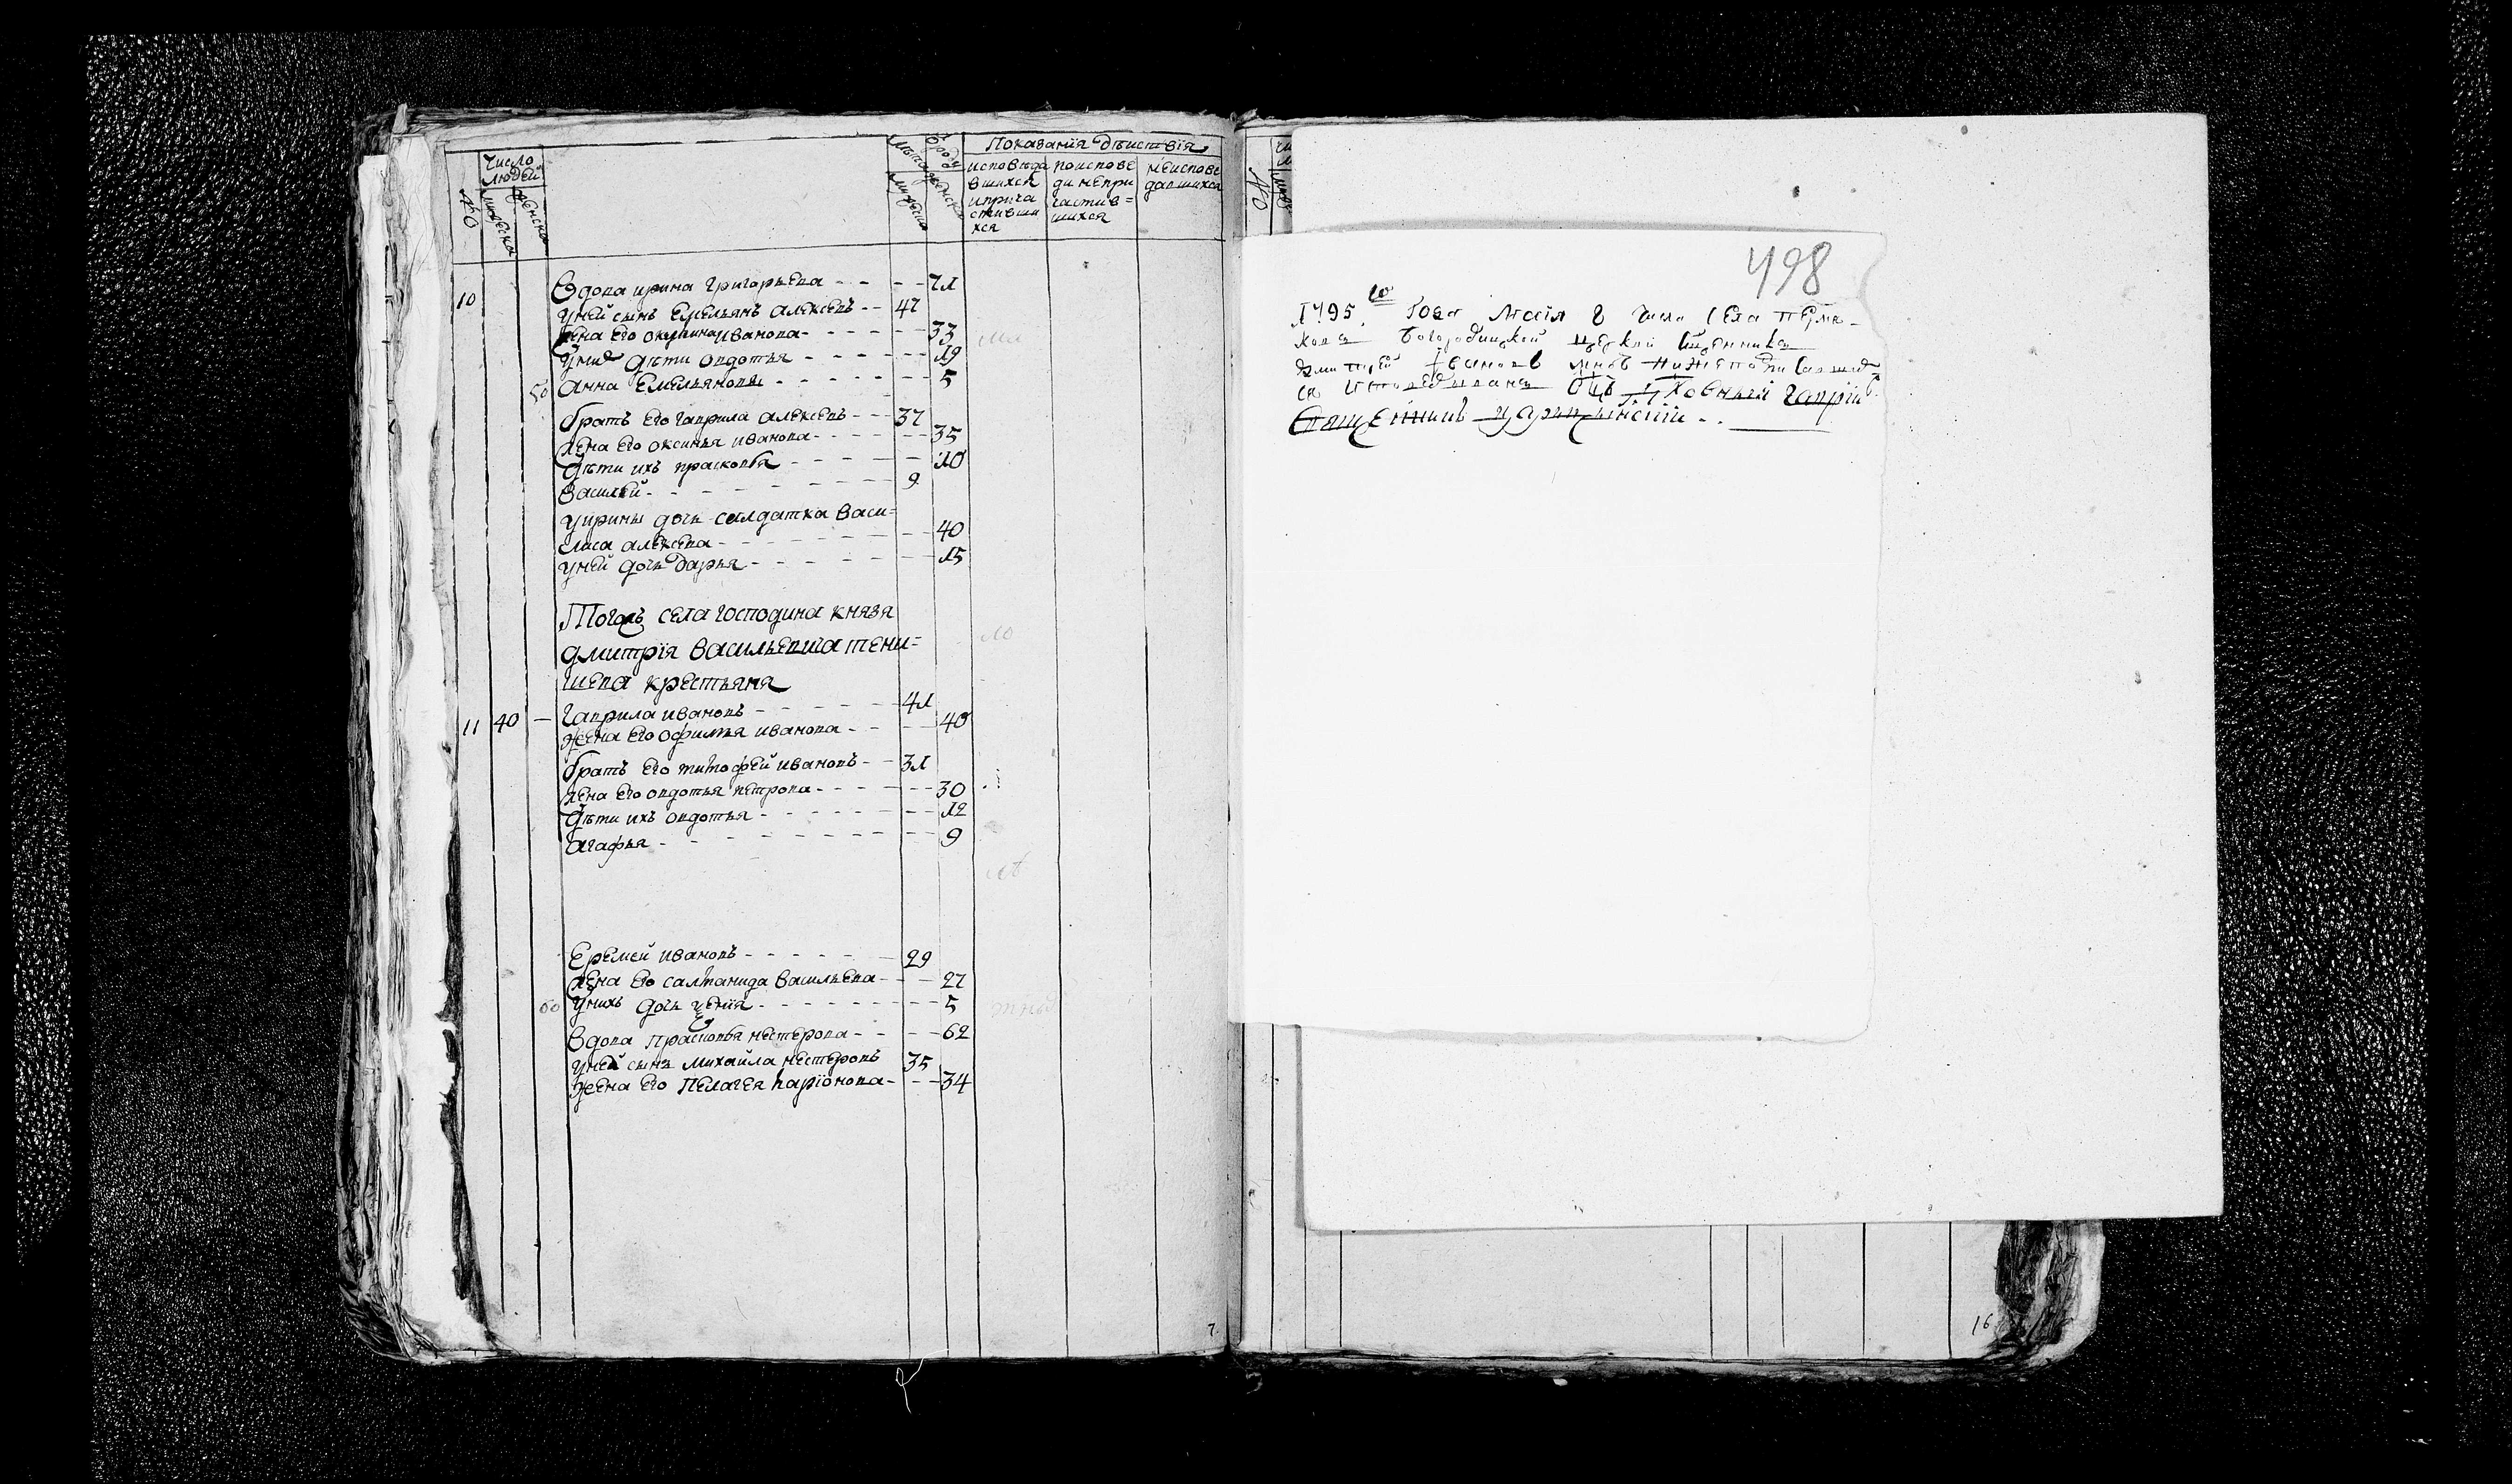 №
Число людей
мужеска
женска
Лѣта
ѿроду
мужеска
женска
Показанїя дѣиствїя
исповѣда
вшихся
иприча
стивши
хся
поиспове
ди непри
частив=
шихся
неиспове
давшихся
10 Вдова ирина Григорьева 71
уней сынъ Емельянъ алексеевъ 47
жена его окулина иванова 33
уних дѣти овдотья 19
50 анна Емельянова 5
братъ его гаврила алексеевъ 37
жена его оксинья иванова 35
дѣти ихъ прасковья 10
Василей 9
уирины дочь салдатка васи=
лиса алексеева 40
уней дочь дарья 15
Тогожъ села господина князя
дмитрїя васильевича тени=
шева крестьяня
11 40 гаврила ивановъ 41
жена его офимья иванова 40
братъ его тимофей ивановъ 31
жена его овдотья петрова 30
дѣти ихъ овдотья 12
агафья 9
Еремей ивановъ 29
жена его салтанида васильева 27
60 унихъ дочь 5
вдова прасковья нестерова 62
уней сынъ михайла нестеровъ 35
жена его Пелагея ларїонова 34
7
498
1795 го Года Маїя 8 числа села
Богородицкой церкви
Дмитрей Ивановъ
гаврїилъ
Священникъ
16